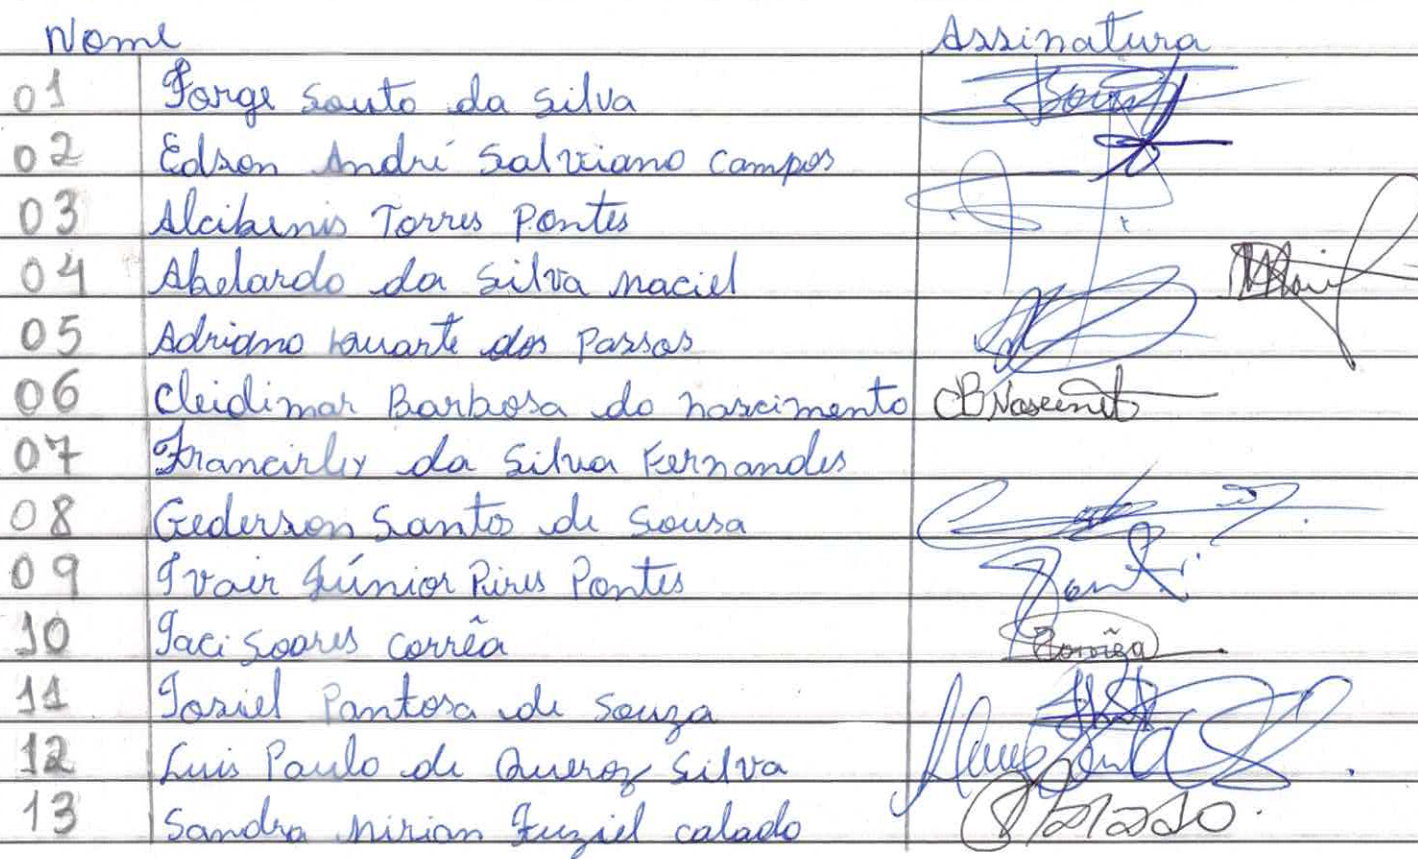 Nome Assinatura
01 Jorge Souto da Silva
02 Edson André Salviano Campos
03 Alcibenis Torres Pontes
04 Abelardo da Silva Maciel
05 Adriano Duarte dos Passos
06 Cleidimar Barbosa do nascimento CBNasciment
07 Francirley da Silva Fernandes
08 Gederson Santos de Sousa
09 Ivair Júnior Pires Pontes
10 Jaci Soares Corrêa
11 Josiel Pantoja de Souza
12 Luis Paulo de Queroz Silva
13 Sandra Mirian Fuziel calado